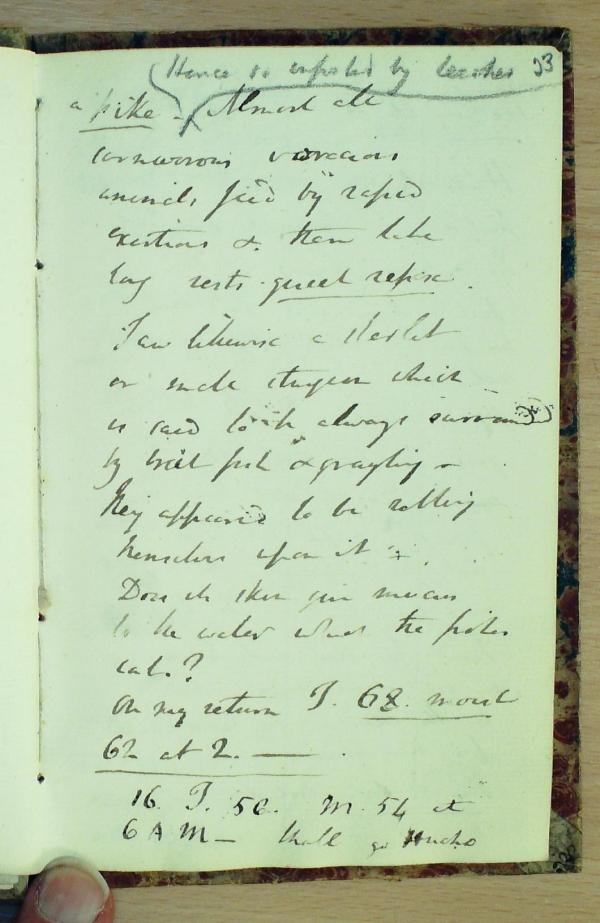 Hence so infested by leeches 93
a pike - Almost all
carnivorous voracious
animals feed by rapid
exertions & then take
long rests quiet repose.
I saw likewise a sterlet
or small sturgeon which
is said to be always surrounded
by white fish & grayling -
they appeared to be rubbing
themselves upon it.
Does its skin give mucus
to the water which the fishes
eat?
On my return T. 68. moist
62 at 2. —
16. T. 58. M. 54 at
6 AM - shall go Hucho